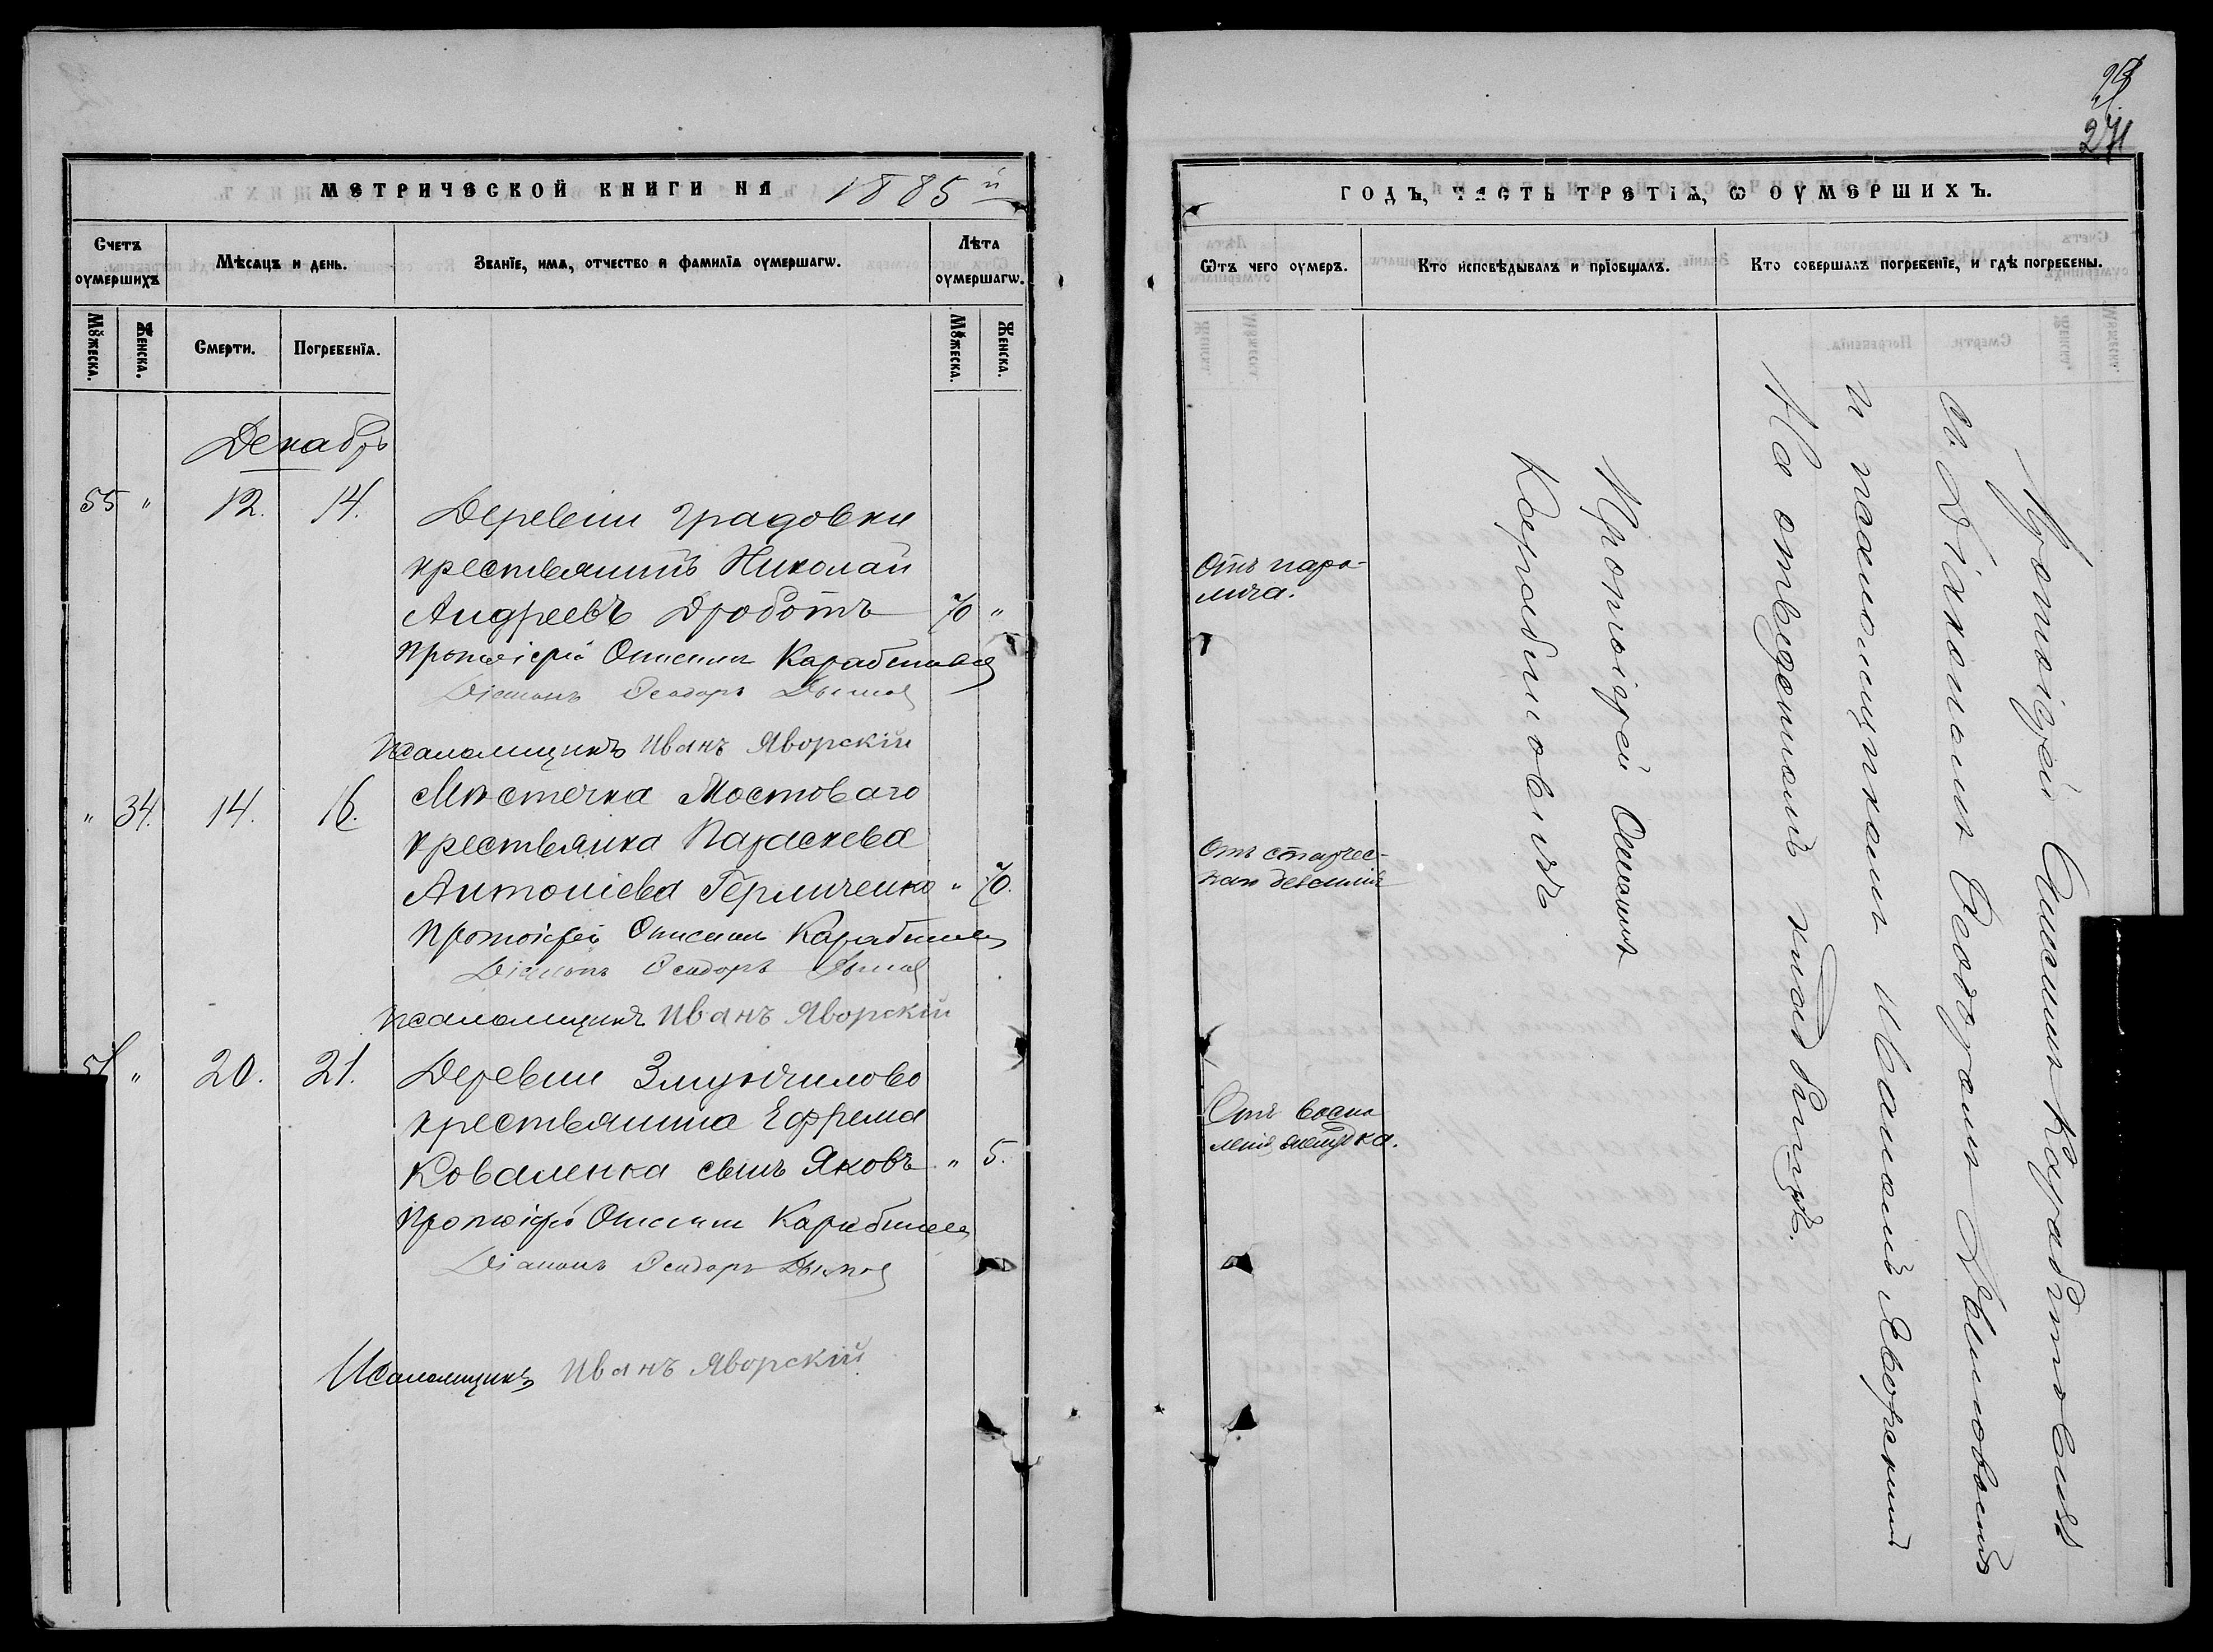 МЕТРИЧЕСКОЙ КНИГИ НА 1885й
Счетъ оумершихъ
Мѣсяцъ и день.
Званїе, имя, отчество и фамилїя оумершагѡ.
Лѣта оумершагѡ.
Мꙋжеска.
Женска.
Смерти.
Погребенїя.
Мꙋжеска.
Женска.
Декабрь
55 " 12. 14. Деревни Градовки
крестьянинъ Николай
Андреевъ Дроботъ 70 "
Протоіерей Онисимъ Карабиновъ
Діаконъ Ѳеодоръ
Псаломщикъ Иванъ Яворскій
" 34. 14. 16. Мѣстечка Мостоваго
крестьянка Параскева
Антоніева Герличенко " 70.
Протоіерей Онисимъ
Діаконъ Ѳеодоръ
Псаломщикъ Иванъ Яворскій
" 20. 21. Деревни
крестьянина Ефрема
Коваленка сынъ Яковъ " 5.
Протоіерей Онисимъ
Діаконъ Ѳеодоръ
Псаломщикъ Иванъ Яворскій
271
ГОДЪ, ЧАСТЬ ТРЕТІЯ, Ѡ ОУМЕРШИХЪ.
Ѿтъ чего оумеръ.
Кто исповѣдывалъ и прїобщалъ.
Кто совершалъ погребенїе, и гдѣ погребены.
Отъ пара-
лича.
Отъ старчес-
Отъ воспа
ленія желудка.
Протоіерей Онисимъ
Карабиновичъ
Протоіерей Онисимъ Карабиновичъ
съ Діакономъ Ѳеодоромъ
и псаломщикомъ Иваномъ Яворскимъ
На отведенномъ кладбищѣ.